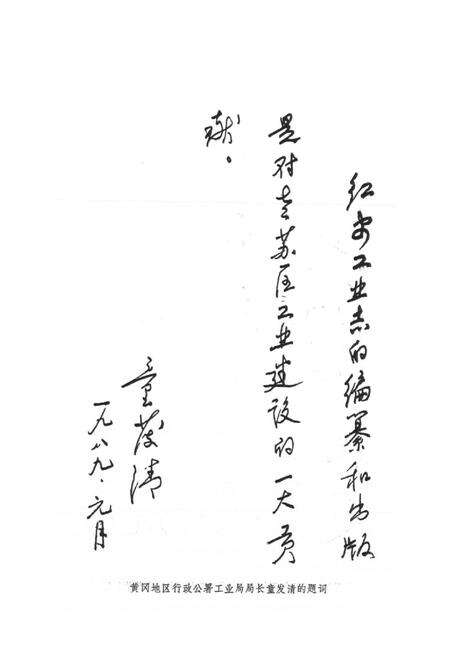 红安工业志的编纂和出版
是对老苏区工业建设的一大贡
献。
童发清
一九八九.元月
黄冈地区行政公署工业局局长童发清的题词